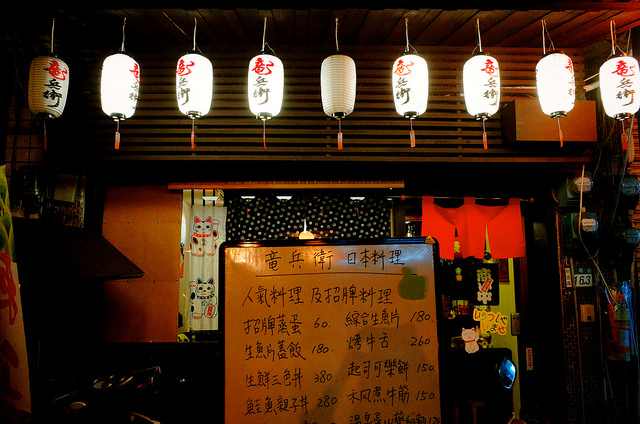 竜兵衛
竜兵衛
竜兵衛
竜兵衛
竜兵衛
竜兵衛
竜兵衛
竜兵衛
竜兵衛 日本料理
人氣料理 及招牌料理
招牌蒸蛋 60. 綜合生魚片 180
生魚片蓋飯 180. 烤牛舌 260
生鮮三色丼 380. 起司可樂餅 150
鮭魚親子丼 280 木风煮牛筋 150
商中
いらっしゃいませ
163